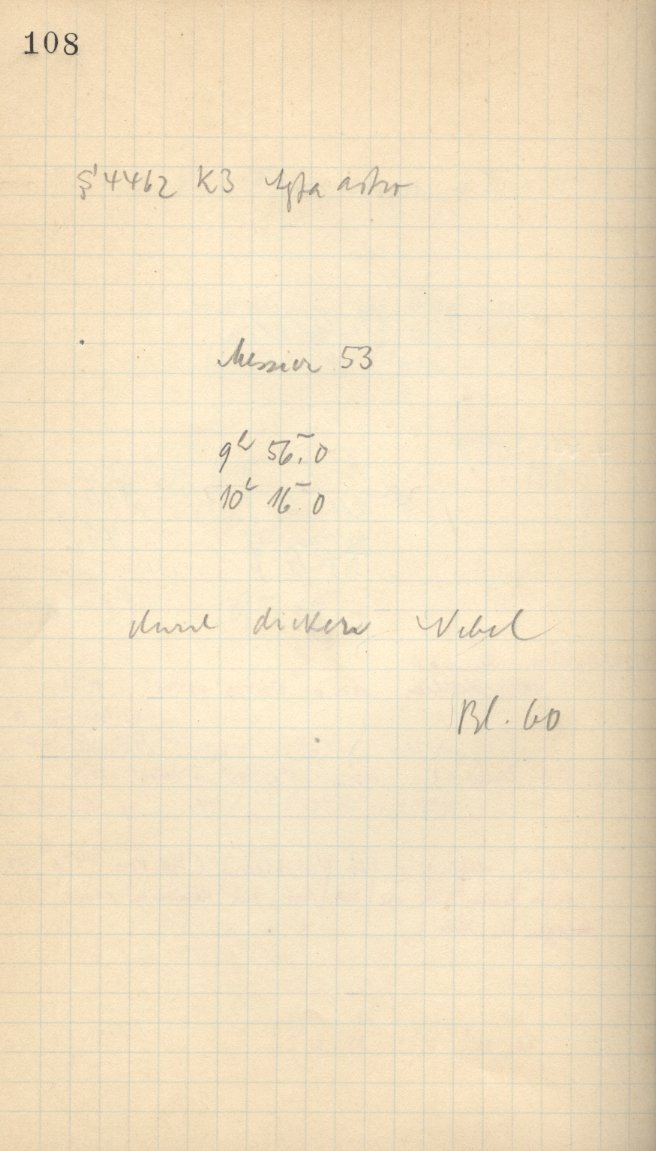 108
S 4462 K3 Agfa astro
Messier 53
9h 56m.0
10h 16m.0
durch dicken Nebel
Bl. 60